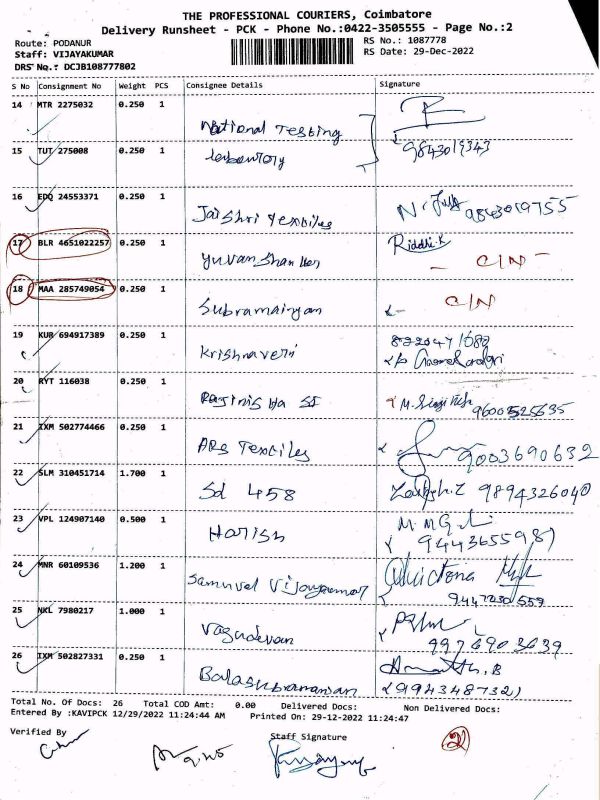 THE PROFESSIONAL COURIERS, Coimbatore
Delivery Runsheet - PCK - Phone No.:0422-3505555 - Page No.:2
Route: PODANUR RS No.: 1087778
Staff: VIJAYAKUMAR RS Date: 29-Dec-2022
DRS No.: DCJB108777802
S No Consignment No Weight PCS Consignee Details Signature
14 MTR 2275032 0.250 1 National Testing
15 TUT 275008 0.250 1 laboratory 9843019343
16 EDQ 24553371 0.250 1 Jaishri Textiles 9843019755
17 BLR 4651022257 0.250 1 Yuvan Shanker Riddhi.K - C/N
18 MAA 285749054 0.250 1 Subramainyan C/N
19 KUR 694917389 0.250 1 Krishnaveni
20 RYT 116038 0.250 1 9600525635
21 IXM 502774466 0.250 1 ARS Textiles 9003690632
22 SLM 310451714 1.700 1 Sd 458 9894326040
23 VPL 124907140 0.500 1 Harish 9443655987
24 MNR 60109536 1.200 1 Samuvel Vijayakumar
25 NKL 7980217 1.000 1 Vasudevan 9976903639
26 IXM 502827331 0.250 1 Balasubramanian
Total No. Of Docs: 26 Total COD Amt: 0.00 Delivered Docs: Non Delivered Docs:
Entered By :KAVIPCK 12/29/2022 11:24:44 AM Printed On: 29-12-2022 11:24:47
Verified By Staff Signature